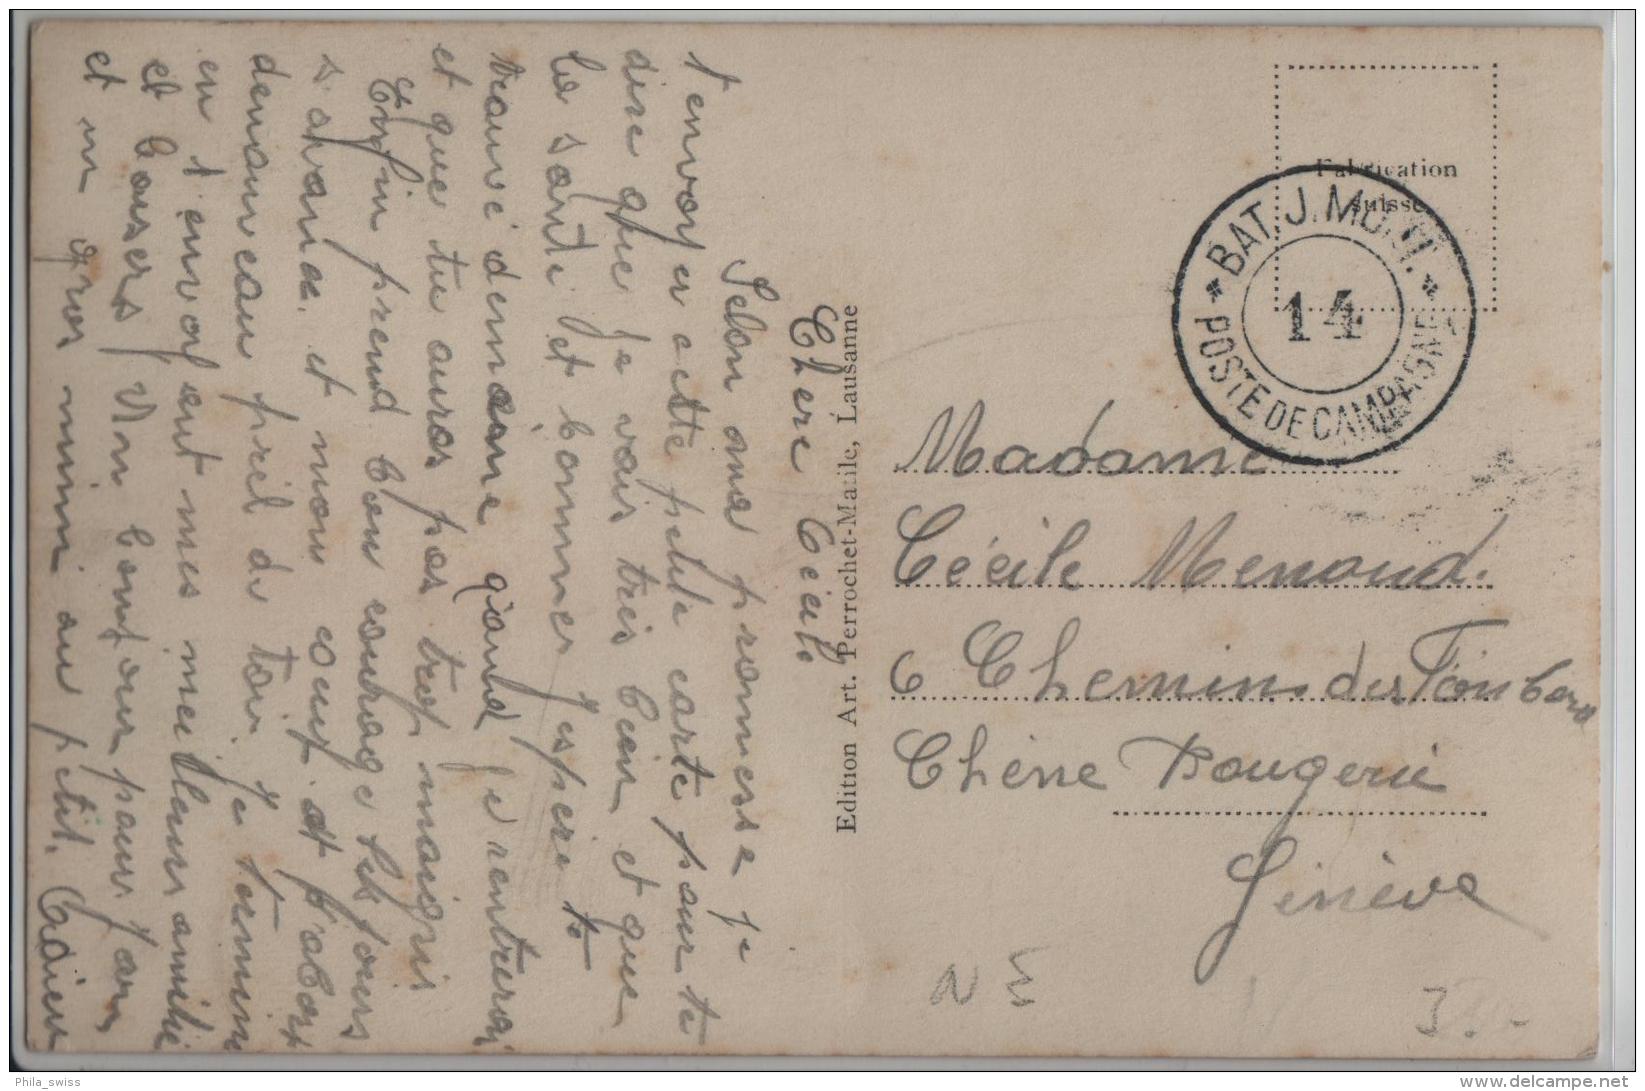 Chère Cécile
Selon ma promesse je
t'envoyer cette petite carte pour te
dire que je vais très bien et que
la santé et bonne j'espère te
trouvé demaine quand je rentrerai
et que tu auras pas trop maigris
Enfin prend bon courage les jours
s'avance et mon coup et d'abort
denauveau près de toi. Je termine
en t'envoyent mes meilleurs amitié
et baisers Mon bonjour pour Jean
et un gros mimi au petit. Adieu
Edition Art. Perrochet-Matile, Lausanne
Fabrication
suisse
BAT. J. MONT.
14
POSTE DE CAMPAGNE
Madame
Cécile Menoud.
6 Chemin des Tombera
Chêne Bougerie
Genève
N E
3.-
Phila_swiss
delcampe.net